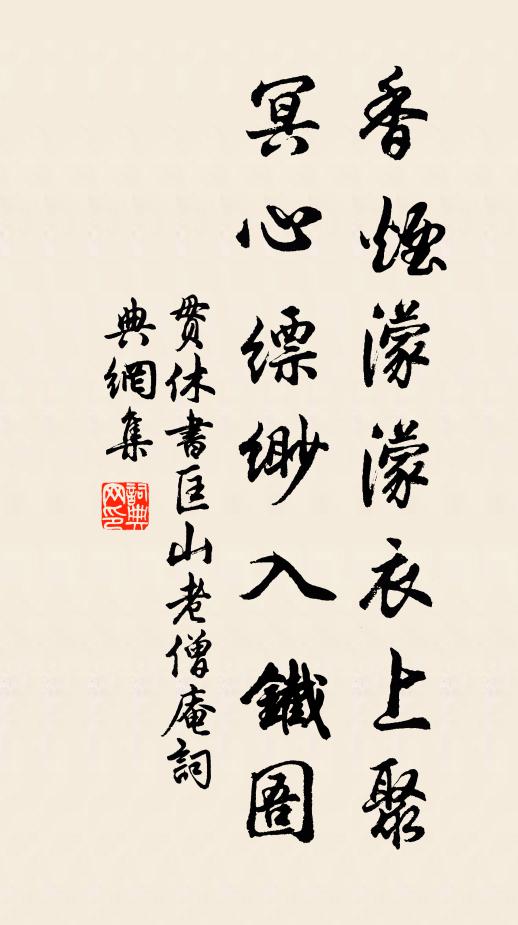 香煙濛濛衣上聚
冥心縹緲入鐵圄
貫休書匡山老僧庵詞
典網集
詞典
网印